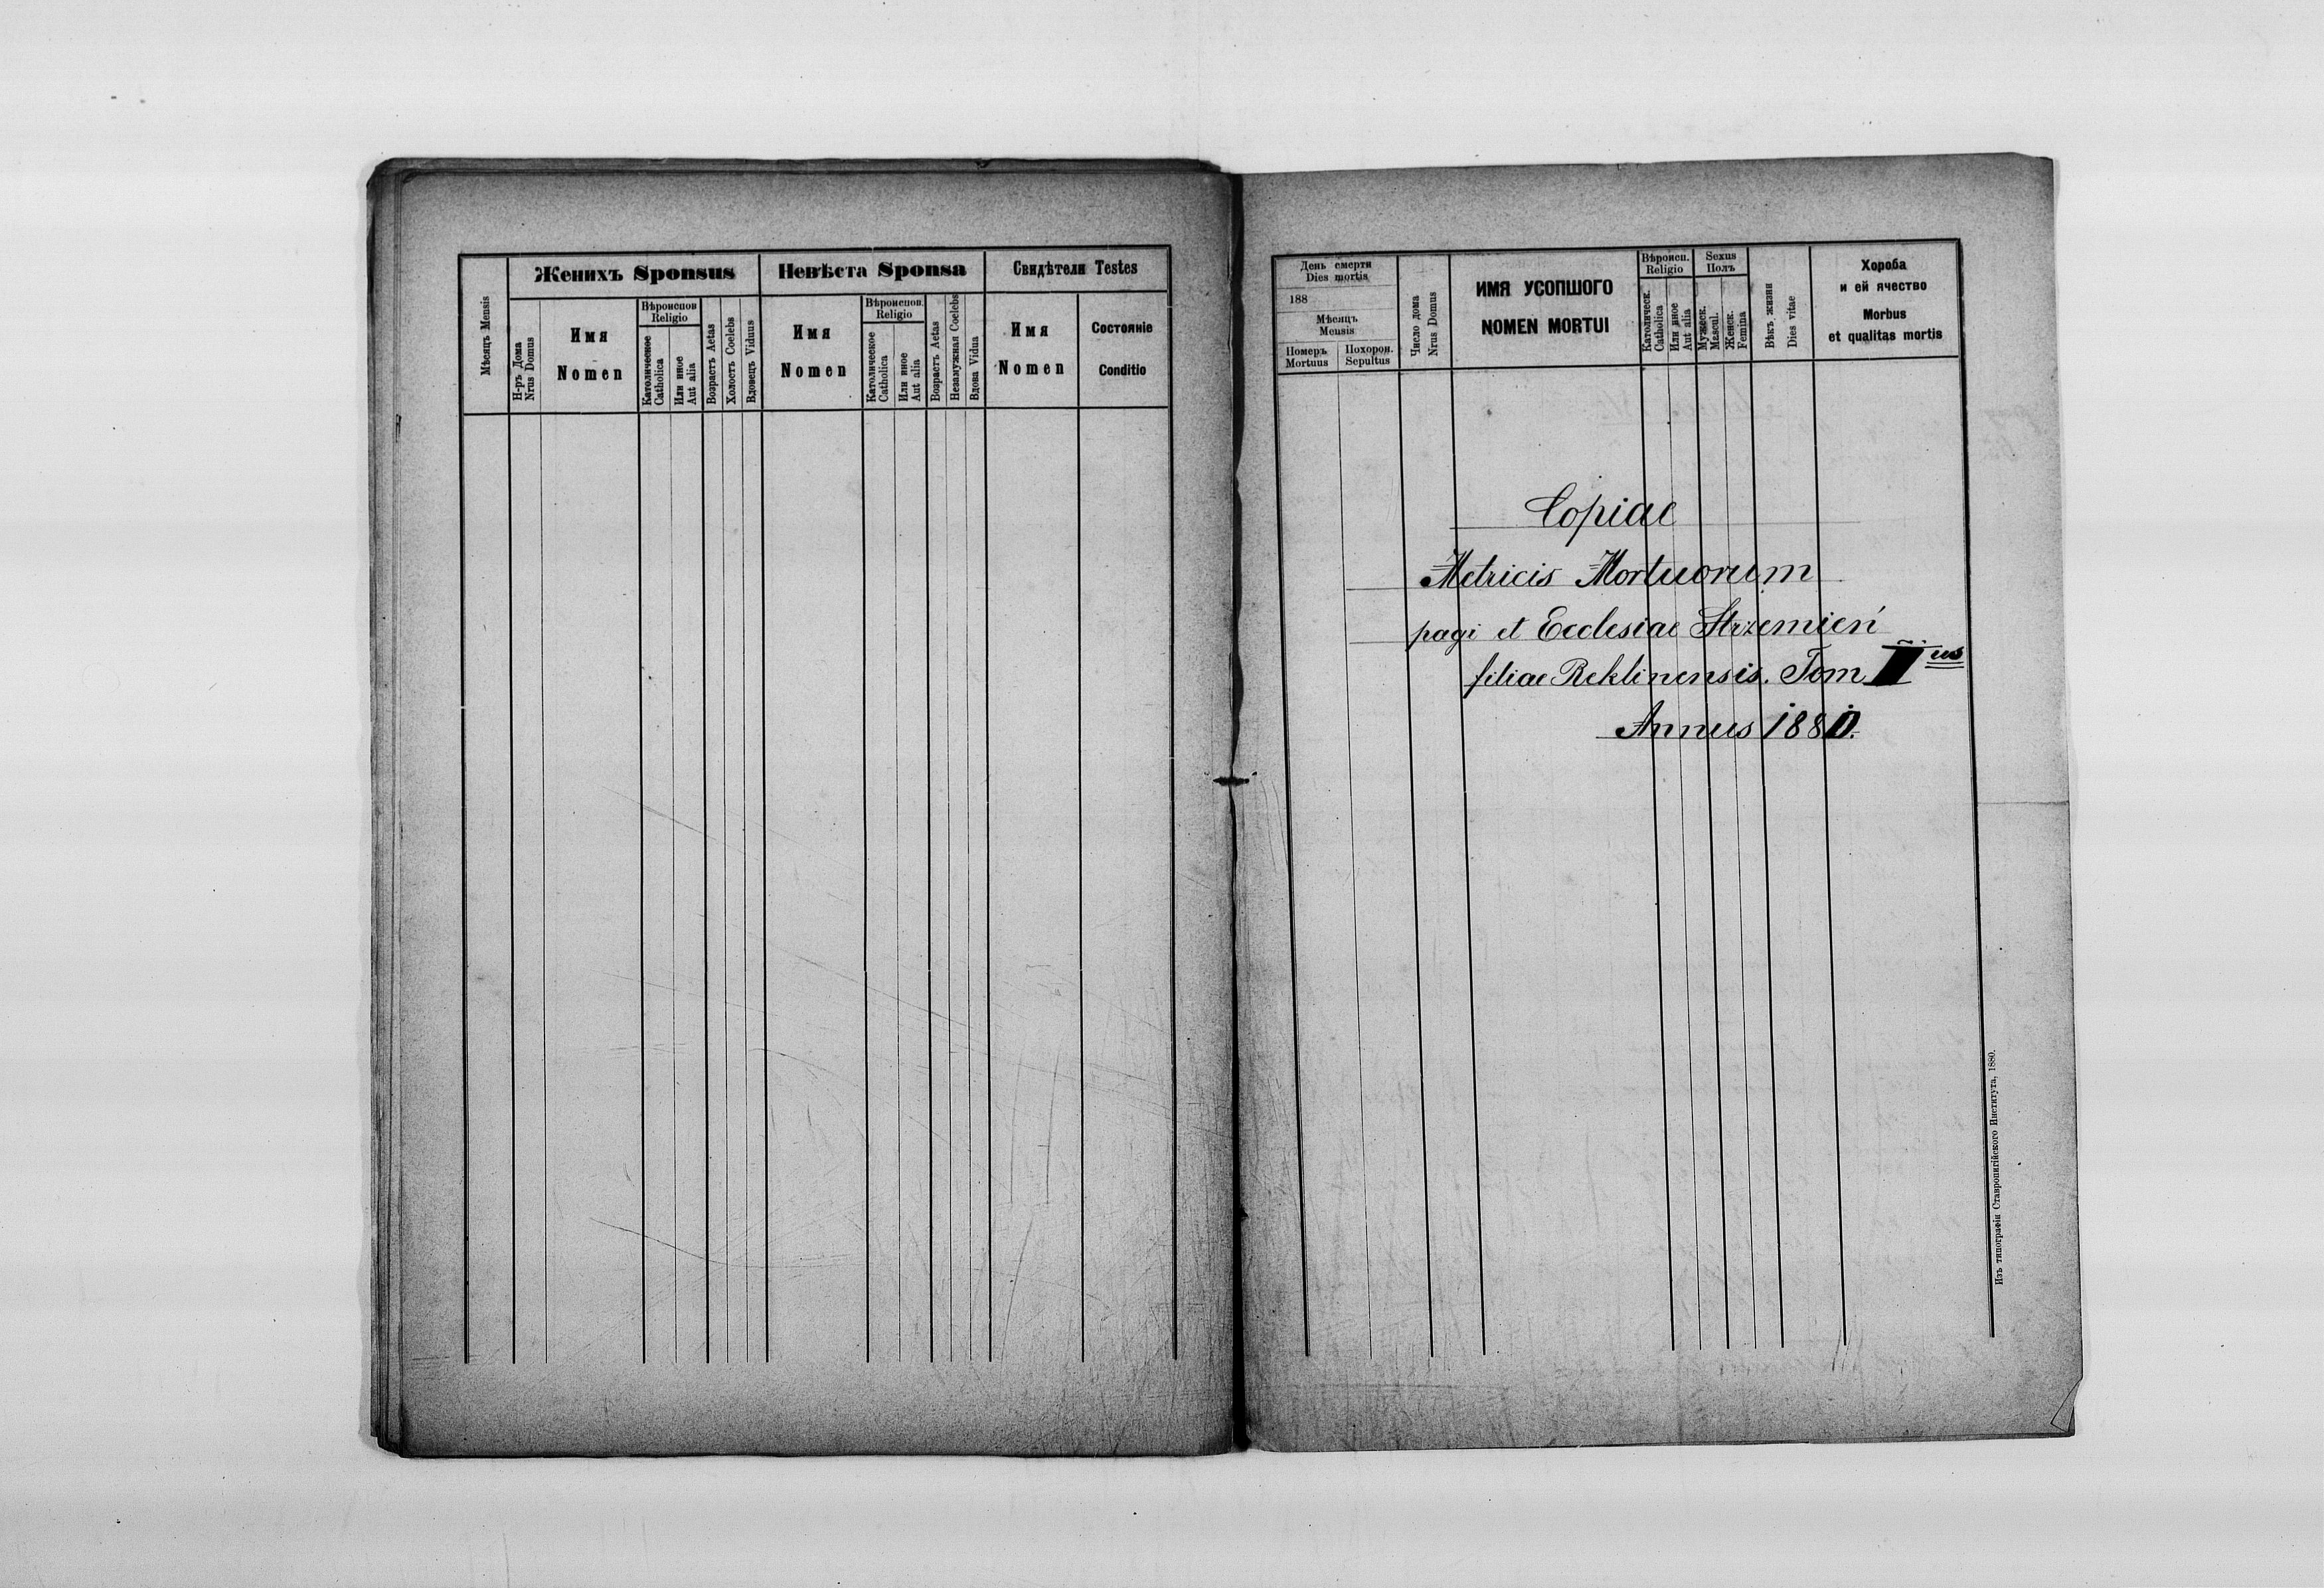 Женихъ Sponsus
Невѣста Sponsa
Свидѣтели Testes
Мѣсяцъ Mensis
Н-ръ Дома
Nrus Domus
Имя
Nomen
Вѣроиспов
Religio
Католическое
Catholica
Или иное
Aut alia
Возрастъ Aetas
Холостъ Coelebs
Вдовецъ Viduus
Имя
Nomen
Вѣроиспов.
Religio
Католическое
Catholica
Или иное
Aut alia
Возрастъ Aetas
Незамужная Coelebs
Вдова Vidua
Имя
Nomen
Состояніе
Conditio
День смерти
Dies mortis
188
Мѣсяцъ
Mensis
Номеръ
Mortuus
Похорон.
Sepultus
Число дома
Nrus Domus
ИМЯ УСОПШОГО
NOMEN MORTUI
Вѣроисп.
Religio
Католическ.
Catholica
Или иное
Aut alia
Sexus
Полъ
Мужеск.
Mascul.
Женск.
Femina
Вѣкъ жизни
Dies vitae
Хороба
и ей ячество
Morbus
et qualitas mortis
Copiae
Metricis Mortuorum
pagi et Ecclesiae Strzemień
filiae Reklinensis. Tom II us
Annus 1880.
Изъ типографіи Ставропигійского Института, 1880.